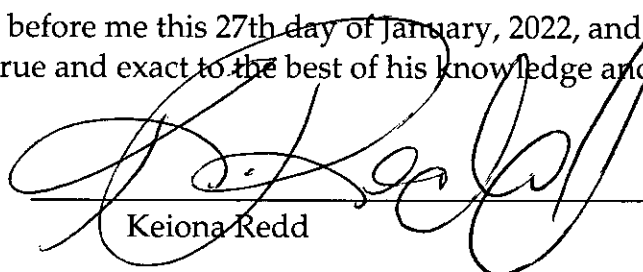 before me this 27th day of January, 2022, and
rue and exact to the best of his knowledge and
Keiona Redd